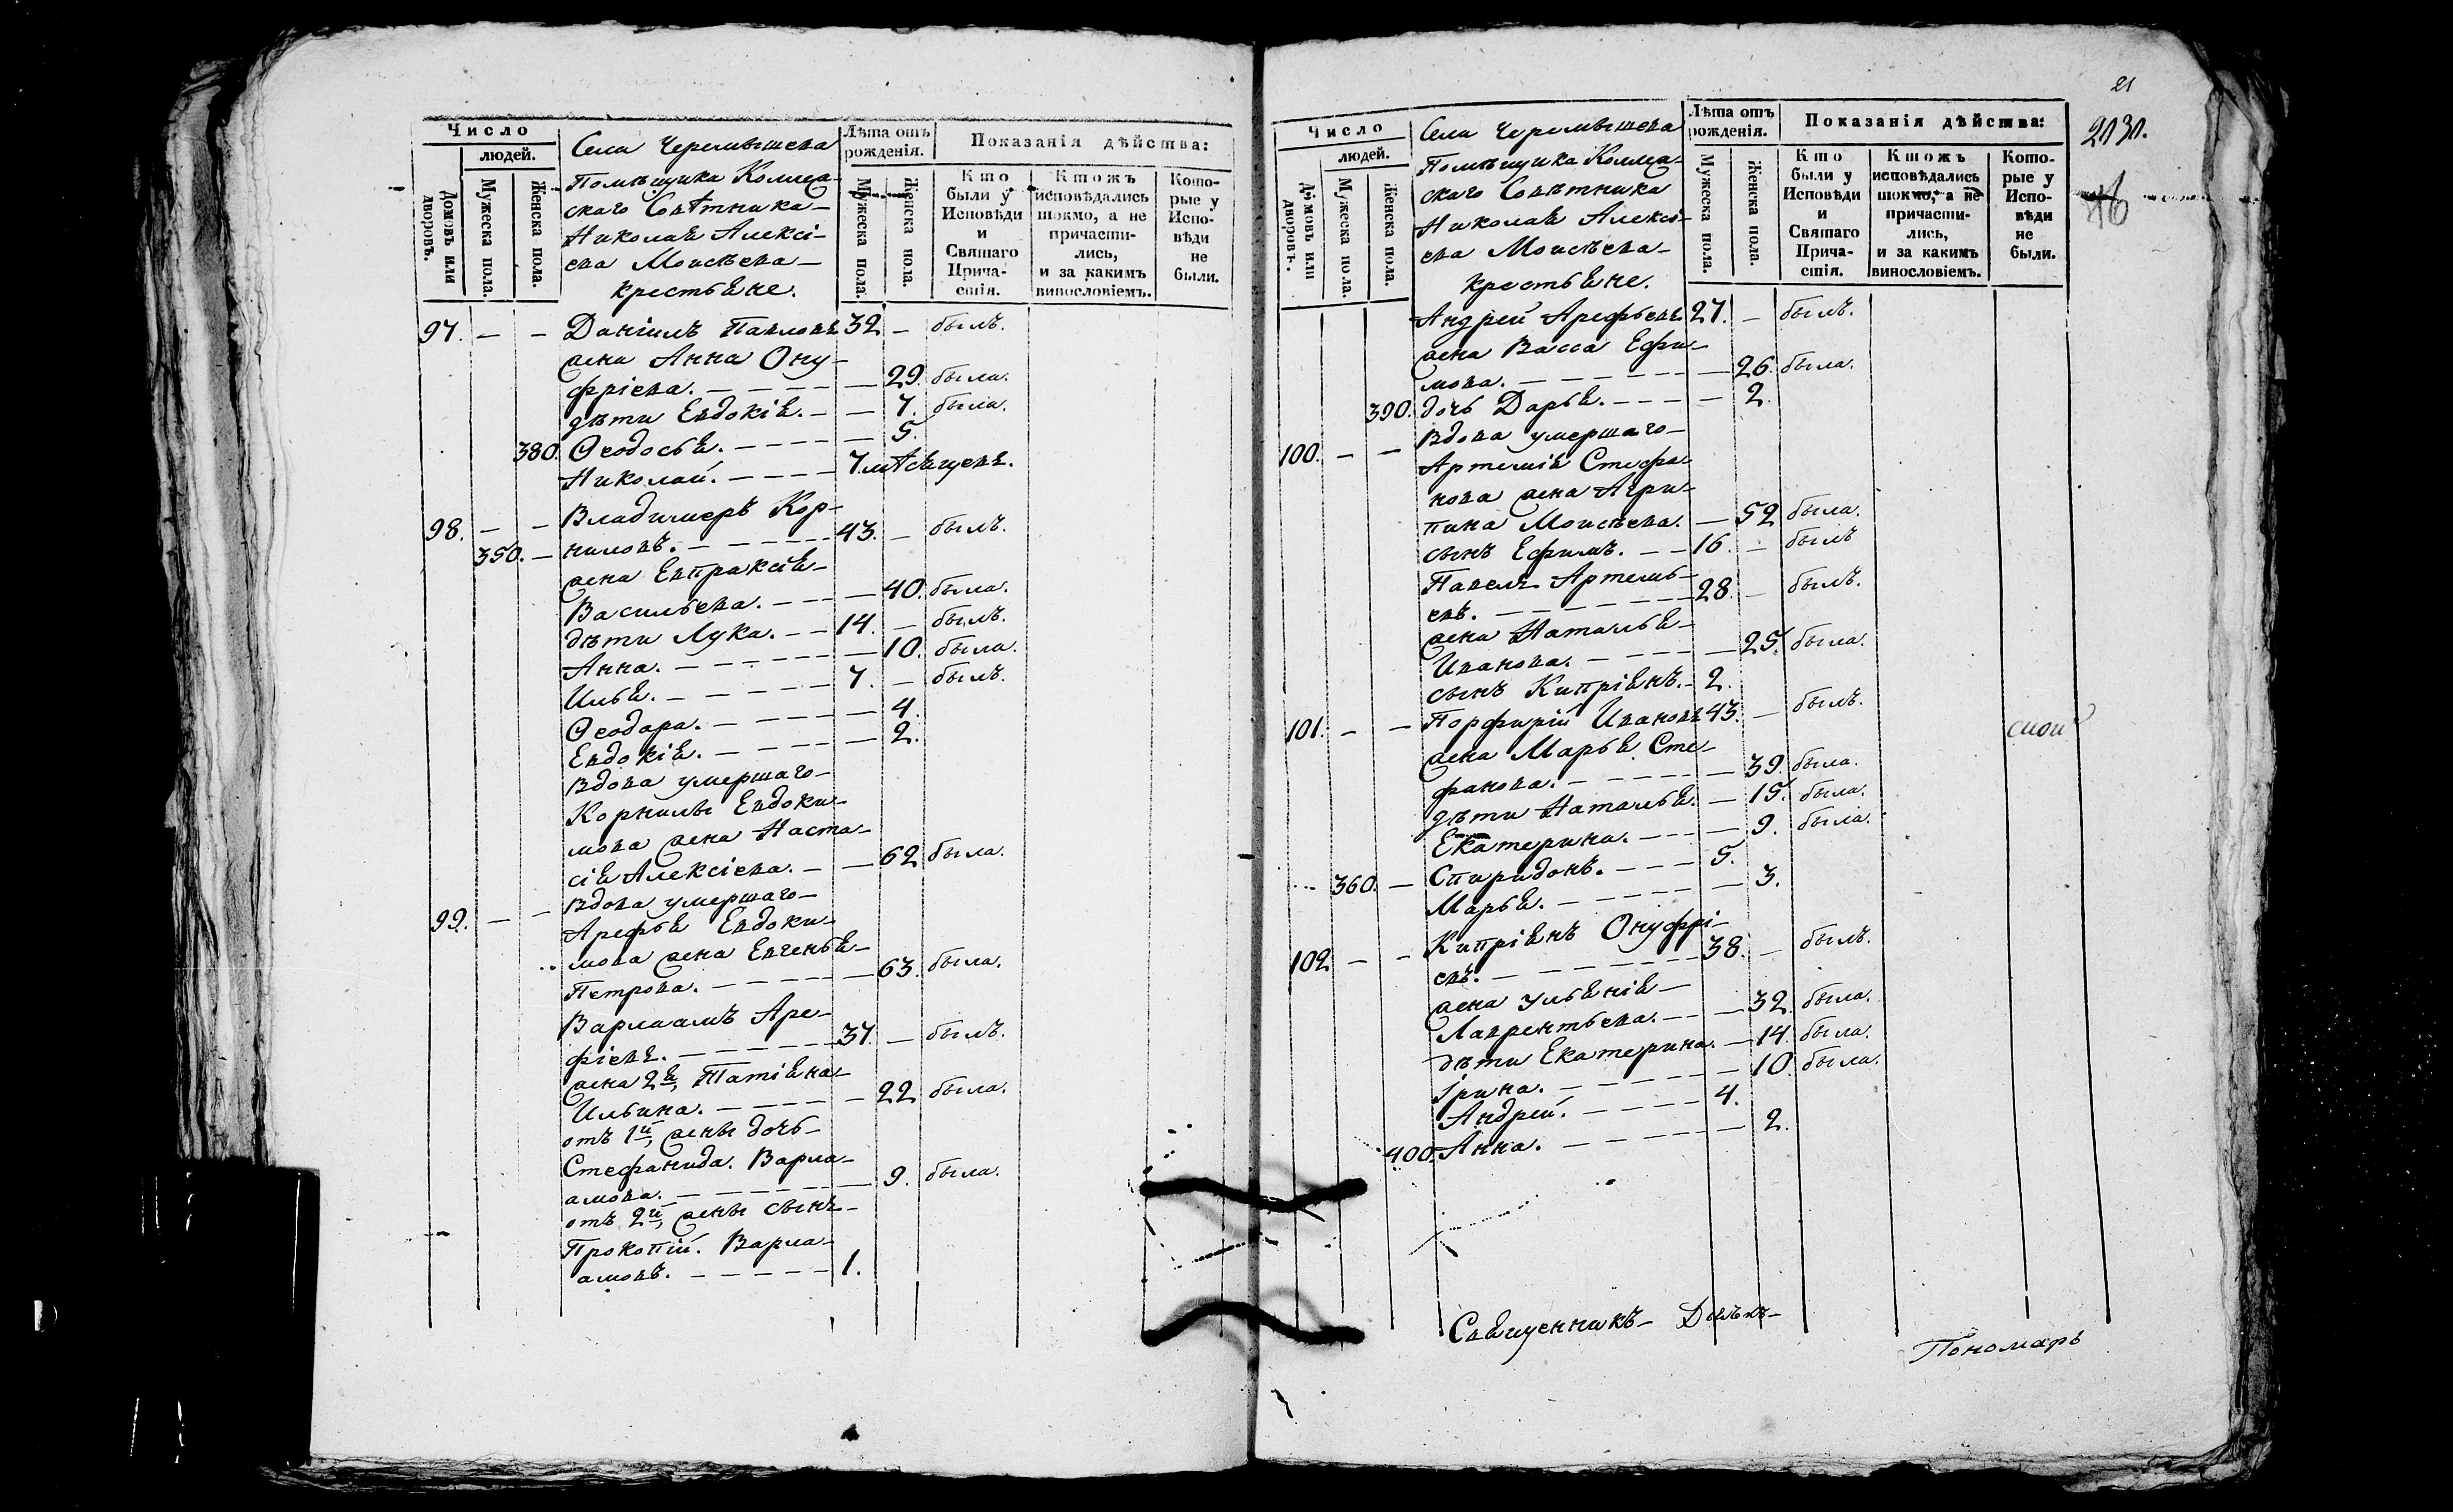 Число
людей.
Домовъ или дворовъ.
Мужеска пола.
Женска пола.
Села Черемышева
Помѣщика Коллеж-
скаго Совѣтника
Николая Алексі-
ева Моисѣева
крестьяне.
Лѣта отъ рожденія.
Мужеска пола.
Женска пола.
Показанія дѣйства:
Кто были у Исповѣди и Святаго Прича-стія.
Ктожъ исповѣдались токмо, а не причасти-лись, и за какимъ винословіемъ.
Кото-рые у Испо-вѣди не были.
97. — — Даніилъ Павловъ 32 — былъ.
жена Анна Ону-
фріева. — 29. была.
дѣти Евдокія. — 7. была.
380. Ѳеодосья. — 5.
Николай. 7 мѣсяцевъ.
98. — — Владимиръ Кор-
350. — ниловъ. 43. — былъ.
жена Евпраксія
Васильева. — 40. была.
дѣти Лука. 14. — былъ.
Анна. — 10. была.
Илья. 7. — былъ.
Ѳеодора. — 4.
Евдокія. — 2.
Вдова умершаго
Корнилы Евдоки-
мова жена Наста-
сія Алексіева. — 62 была.
99. — — Вдова умершаго
Арефья Евдоки-
мова жена Евгенья
Петрова. — 63. была.
Варлаамъ Аре-
фіевъ. 37. — былъ.
жена 2я, Татіяна
Ильина. — 22 была.
отъ 1й, жены дочь
Стефанида. Варла-
амова. — 9. была.
отъ 2й, жены сынъ
Прокопій. Варла-
амовъ. 1.
21
2030.
Число
людей.
Домовъ или дворовъ.
Мужеска пола.
Женска пола.
Села Черемышева
Помѣщика Коллеж-
скаго Совѣтника
Николая Алексі-
ева Моисѣева
крестьяне.
Лѣта отъ рожденія.
Мужеска пола.
Женска пола.
Показанія дѣйства:
Кто были у Исповѣди и Святаго Прича-стія.
Ктожъ исповѣдались токмо, а не причасти-лись, и за какимъ винословіемъ.
Кото-рые у Испо-вѣди не были.
Андрей Арефьевъ 27. — былъ.
жена Васса Ефи-
мова. — 26. была.
390. дочь Дарья. — 2.
100. — — Вдова умершаго
Артемія Стефа-
нова жена Агри-
пина Моисѣева. — 52 была.
сынъ Ефимъ. 16. — былъ
Павелъ Артемь-
евъ. 28. — былъ.
жена Наталья
Иванова. — 25. была.
сынъ Кипріянъ. 2.
101. — — Порфирій Ивановъ 43. — былъ.
жена Марья Сте-
фанова. — 39. была.
дѣти Наталья. — 15. была.
Екатерина. — 9. была.
360. — Спиридонъ. 5.
Марья. — 3.
102 — — Кипріянъ Онуфрі-
евъ. 38. — былъ.
жена Ульянія
Лаврентьева. — 32. была.
дѣти Екатерина. — 14. была.
Ірина. — 10. была.
Андрей. 4.
400. Анна. — 2.
Священникъ
Пономарь